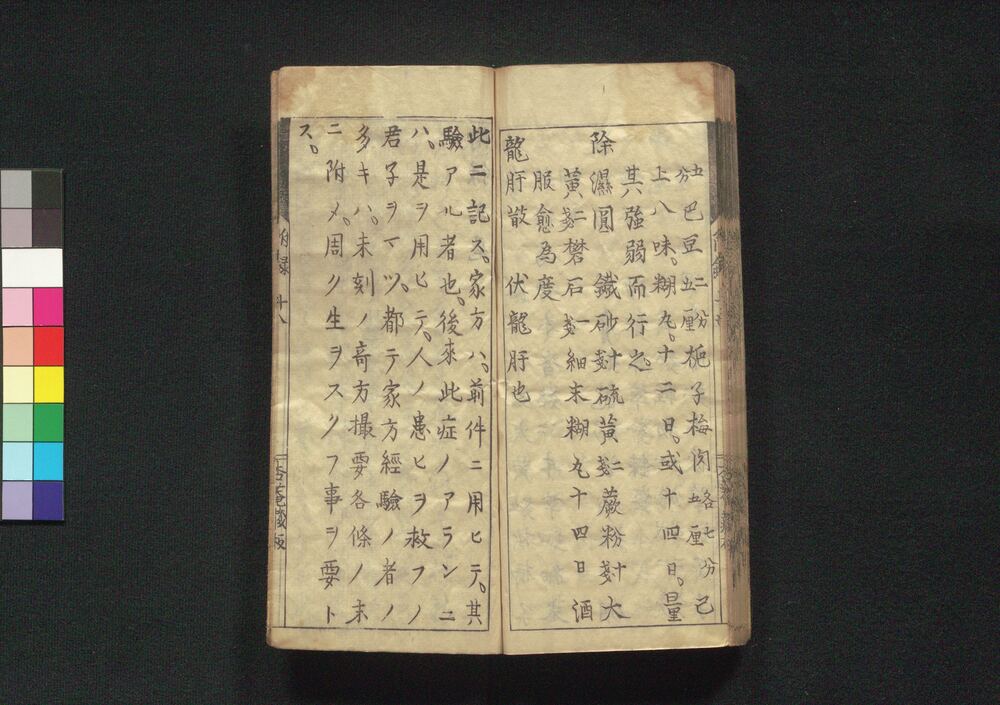 五分巴豆二分五厘梔子梅肉各七分五厘己
上八味。糊丸。十二日。或十四日。量
其強弱而行之。
除濕圓 鐵砂十匁硫黄二匁蕨粉十匁大
黄二匁礬石一匁細末糊丸十四日酒
服愈為度
龍肝散 伏龍肝也
此ニ記ス。家方ハ。前件ニ用ヒテ。其
驗アル者也。後來此症ノアランニ
ハ。是ヲ用ヒテ。人ノ患ヒヲ救フノ
君子ヲマツ。都テ家方經驗ノ者ノ
多キハ。未刻ノ奇方撮要各條ノ末
ニ附メ。周ク生ヲスクフ事ヲ要ト
ス。
附録 十八